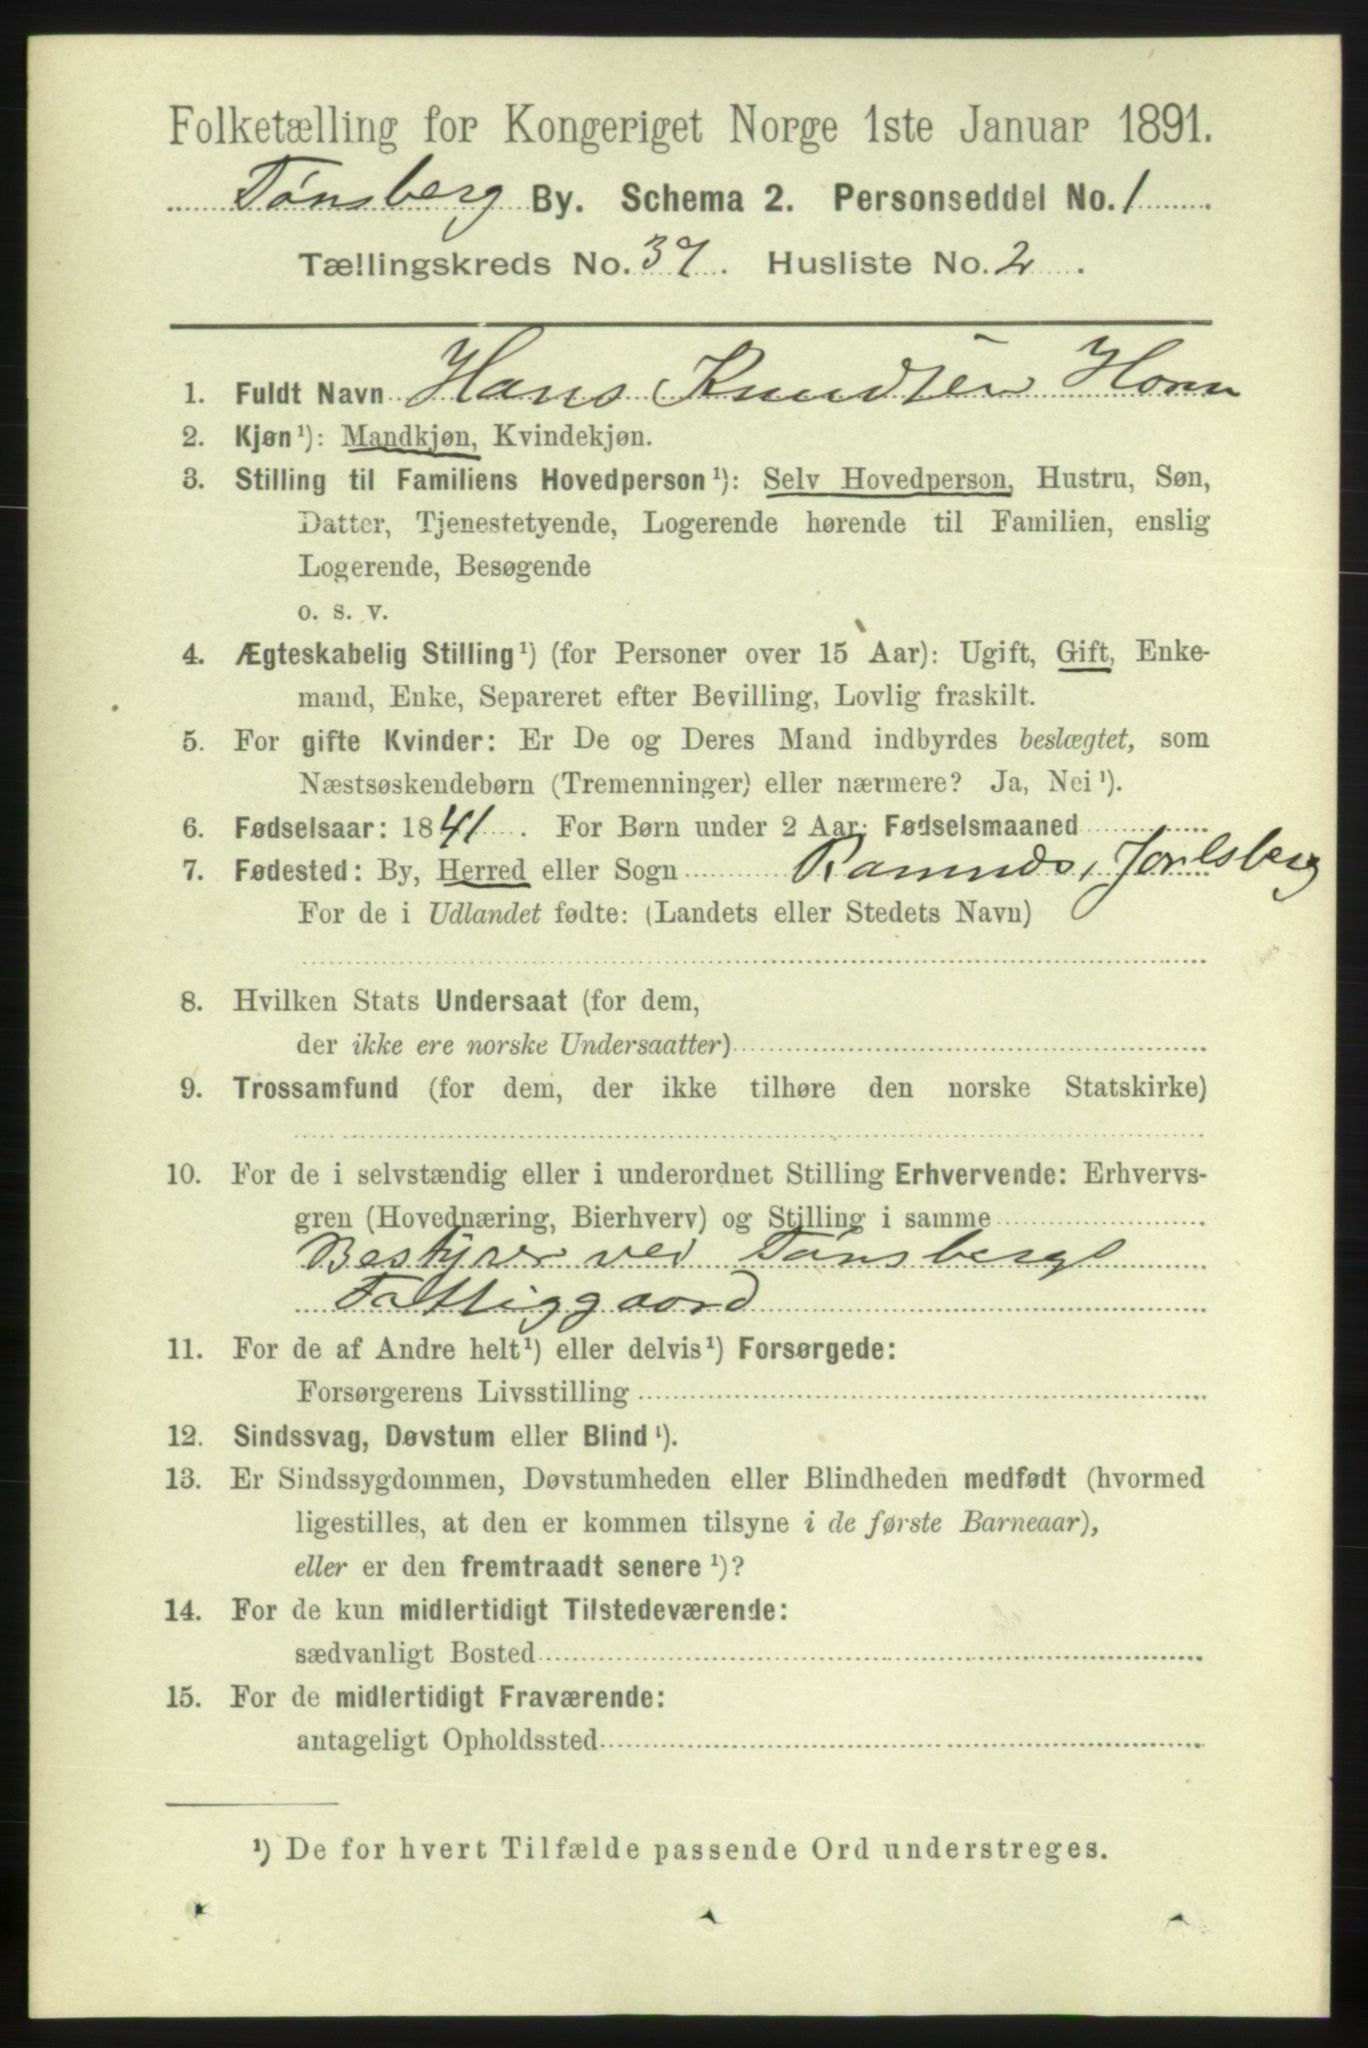 Folketælling for Kongeriget Norge 1ste Januar 1891.
Tønsberg By. Schema 2. Personseddel No. 1
Tællingskreds No. 37. Husliste No. 2.
1. Fuldt Navn Hans Knudsen Horn
2. Kjøn¹): Mandkjøn, Kvindekjøn.
3. Stilling til Familiens Hovedperson¹): Selv Hovedperson, Hustru, Søn,
Datter, Tjenestetyende, Logerende hørende til Familien, enslig
Logerende, Besøgende
o. s. v.
4. Ægteskabelig Stilling¹) (for Personer over 15 Aar): Ugift, Gift, Enke-
mand, Enke, Separeret efter Bevilling, Lovlig fraskilt.
5. For gifte Kvinder: Er De og Deres Mand indbyrdes beslægtet, som
Næstsøskendebørn (Tremenninger) eller nærmere? Ja, Nei¹).
6. Fødselsaar: 1841. For Børn under 2 Aar: Fødselsmaaned
7. Fødested: By, Herred eller Sogn Ramnds, Jarlsberg
For de i Udlandet fødte: (Landets eller Stedets Navn)
8. Hvilken Stats Undersaat (for dem,
der ikke ere norske Undersaatter)
9. Trossamfund (for dem, der ikke tilhøre den norske Statskirke)
10. For de i selvstændig eller i underordnet Stilling Erhvervende: Erhvervs-
gren (Hovednæring, Bierhverv) og Stilling i samme
Bestyrer ved Tønsbergs
Fattiggaard
11. For de af Andre helt¹) eller delvis¹) Forsørgede:
Forsørgerens Livsstilling
12. Sindssvag, Døvstum eller Blind¹).
13. Er Sindssygdommen, Døvstumheden eller Blindheden medfødt (hvormed
ligestilles, at den er kommen tilsyne i de første Barneaar),
eller er den fremtraadt senere¹)?
14. For de kun midlertidigt Tilstedeværende:
sædvanligt Bosted
15. For de midlertidigt Fraværende:
antageligt Opholdssted
¹) De for hvert Tilfælde passende Ord understreges.